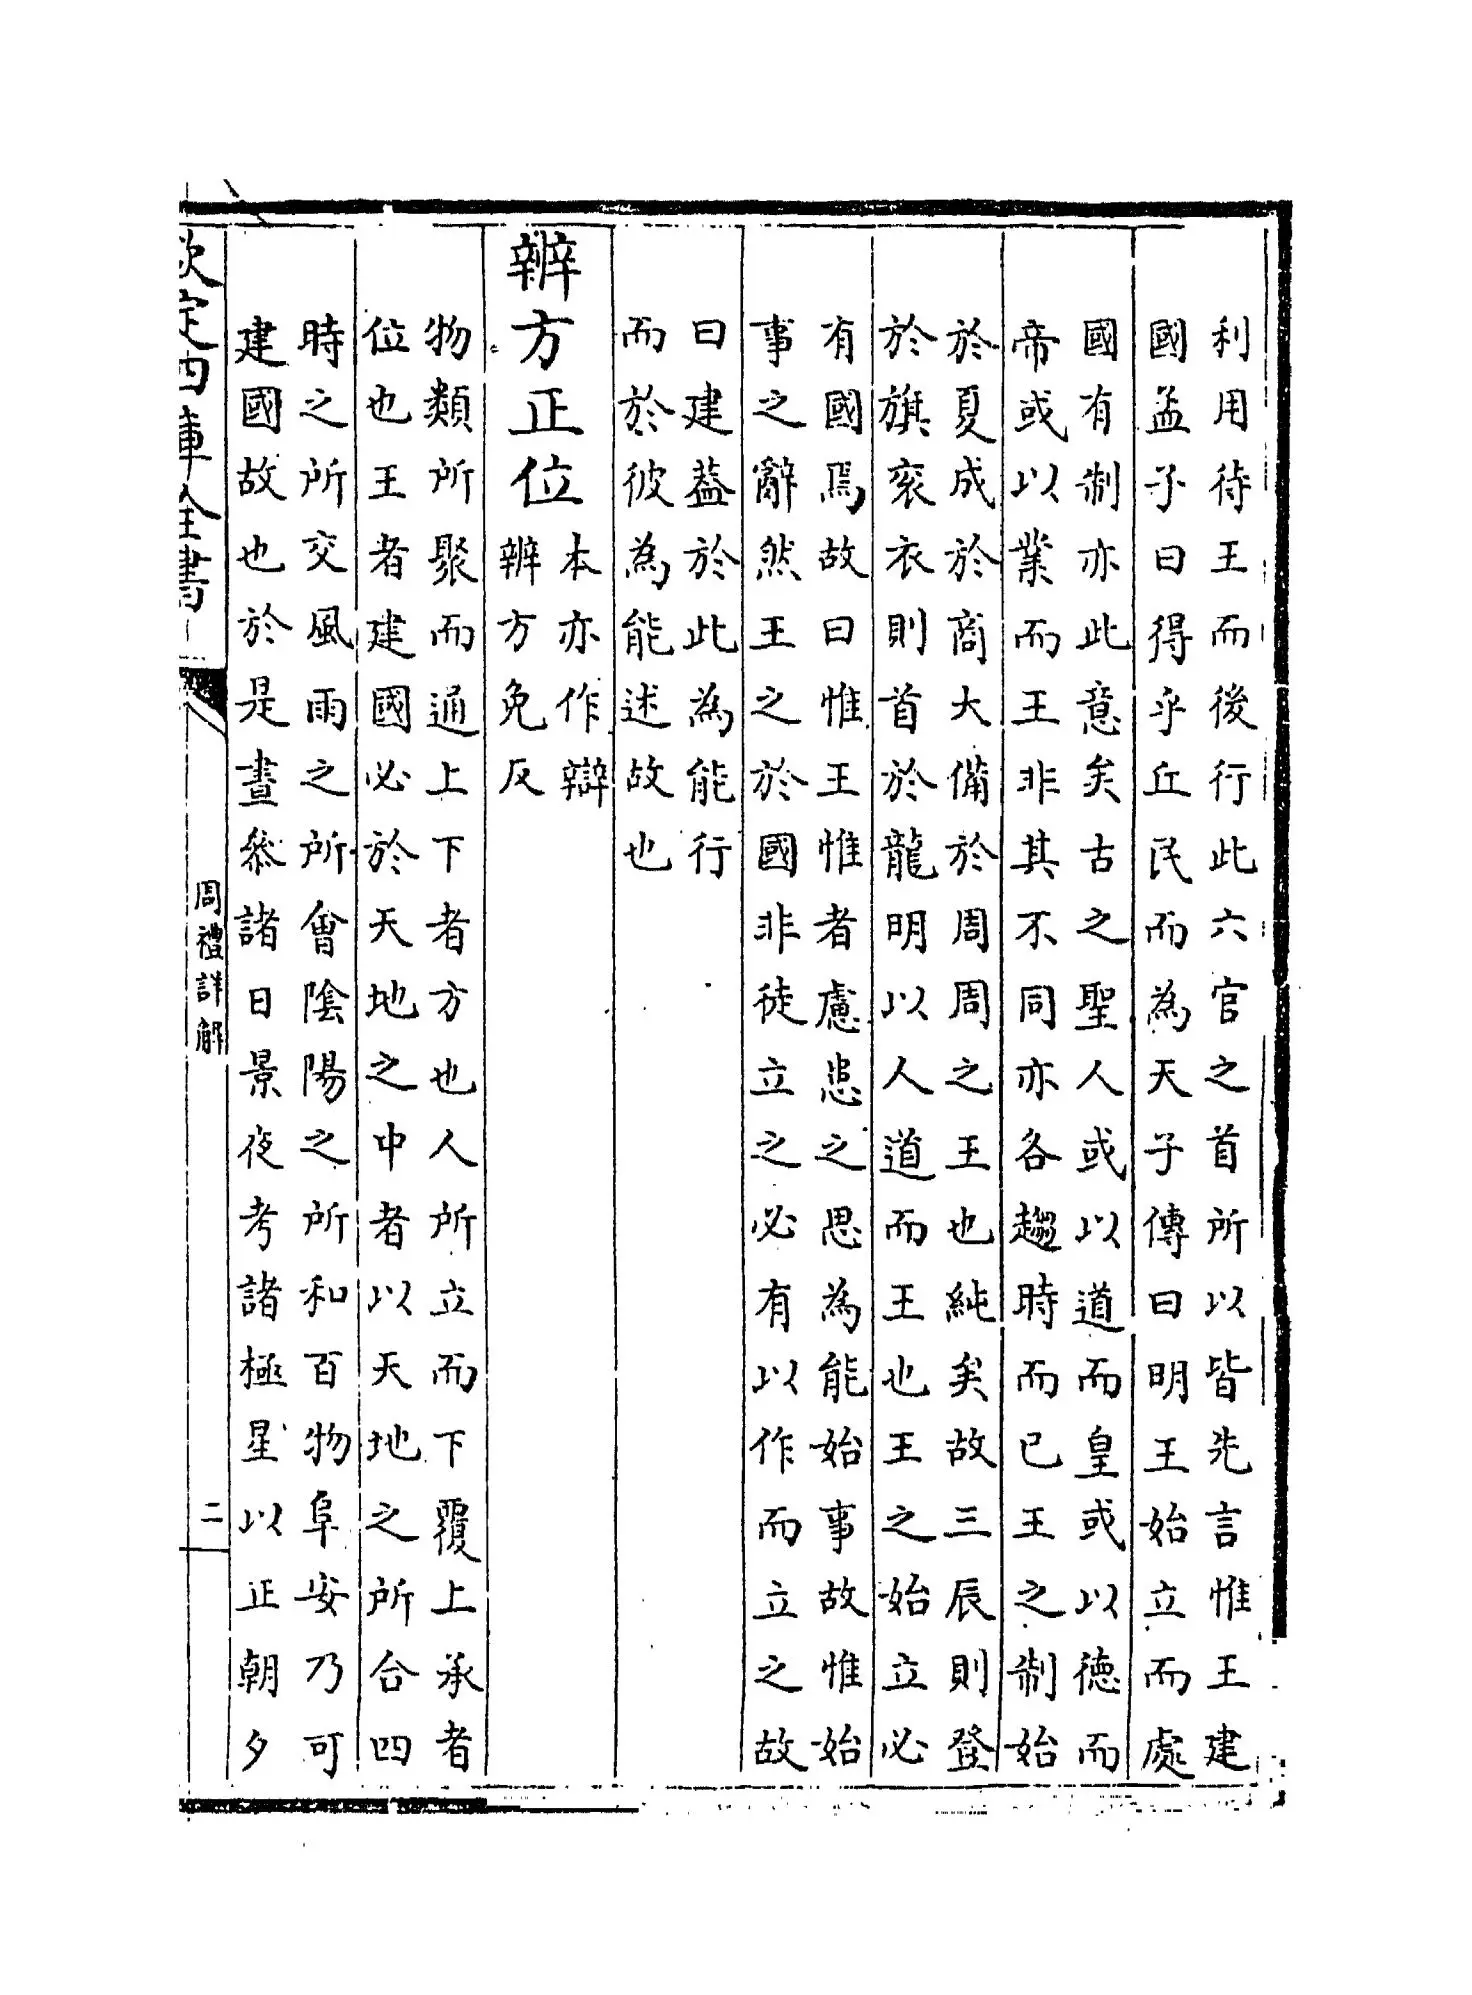 利用待王而後行此六官之首所以皆先言惟王建
國孟子曰得乎丘民而為天子傳曰明王始立而處
國有制亦此意矣古之聖人或以道而皇或以德而
帝或以業而王非其不同亦各趨時而已王之制始
於夏成於商大備於周周之王也純矣故三辰則登
於旗衮衣則首於龍明以人道而王也王之始立必
有國焉故曰惟王惟者慮患之思為能始事故惟始
事之辭然王之於國非徒立之必有以作而立之故
曰建蓋於此為能行
而於彼為能述故也
辨方正位
本亦作辯
辨方免反
物類所聚而通上下者方也人所立而下覆上承者
位也王者建國必於天地之中者以天地之所合四
時之所交風雨之所會陰陽之所和百物阜安乃可
建國故也於是晝叅諸日景夜考諸極星以正朝夕
欽定四庫全書
周禮詳解
二